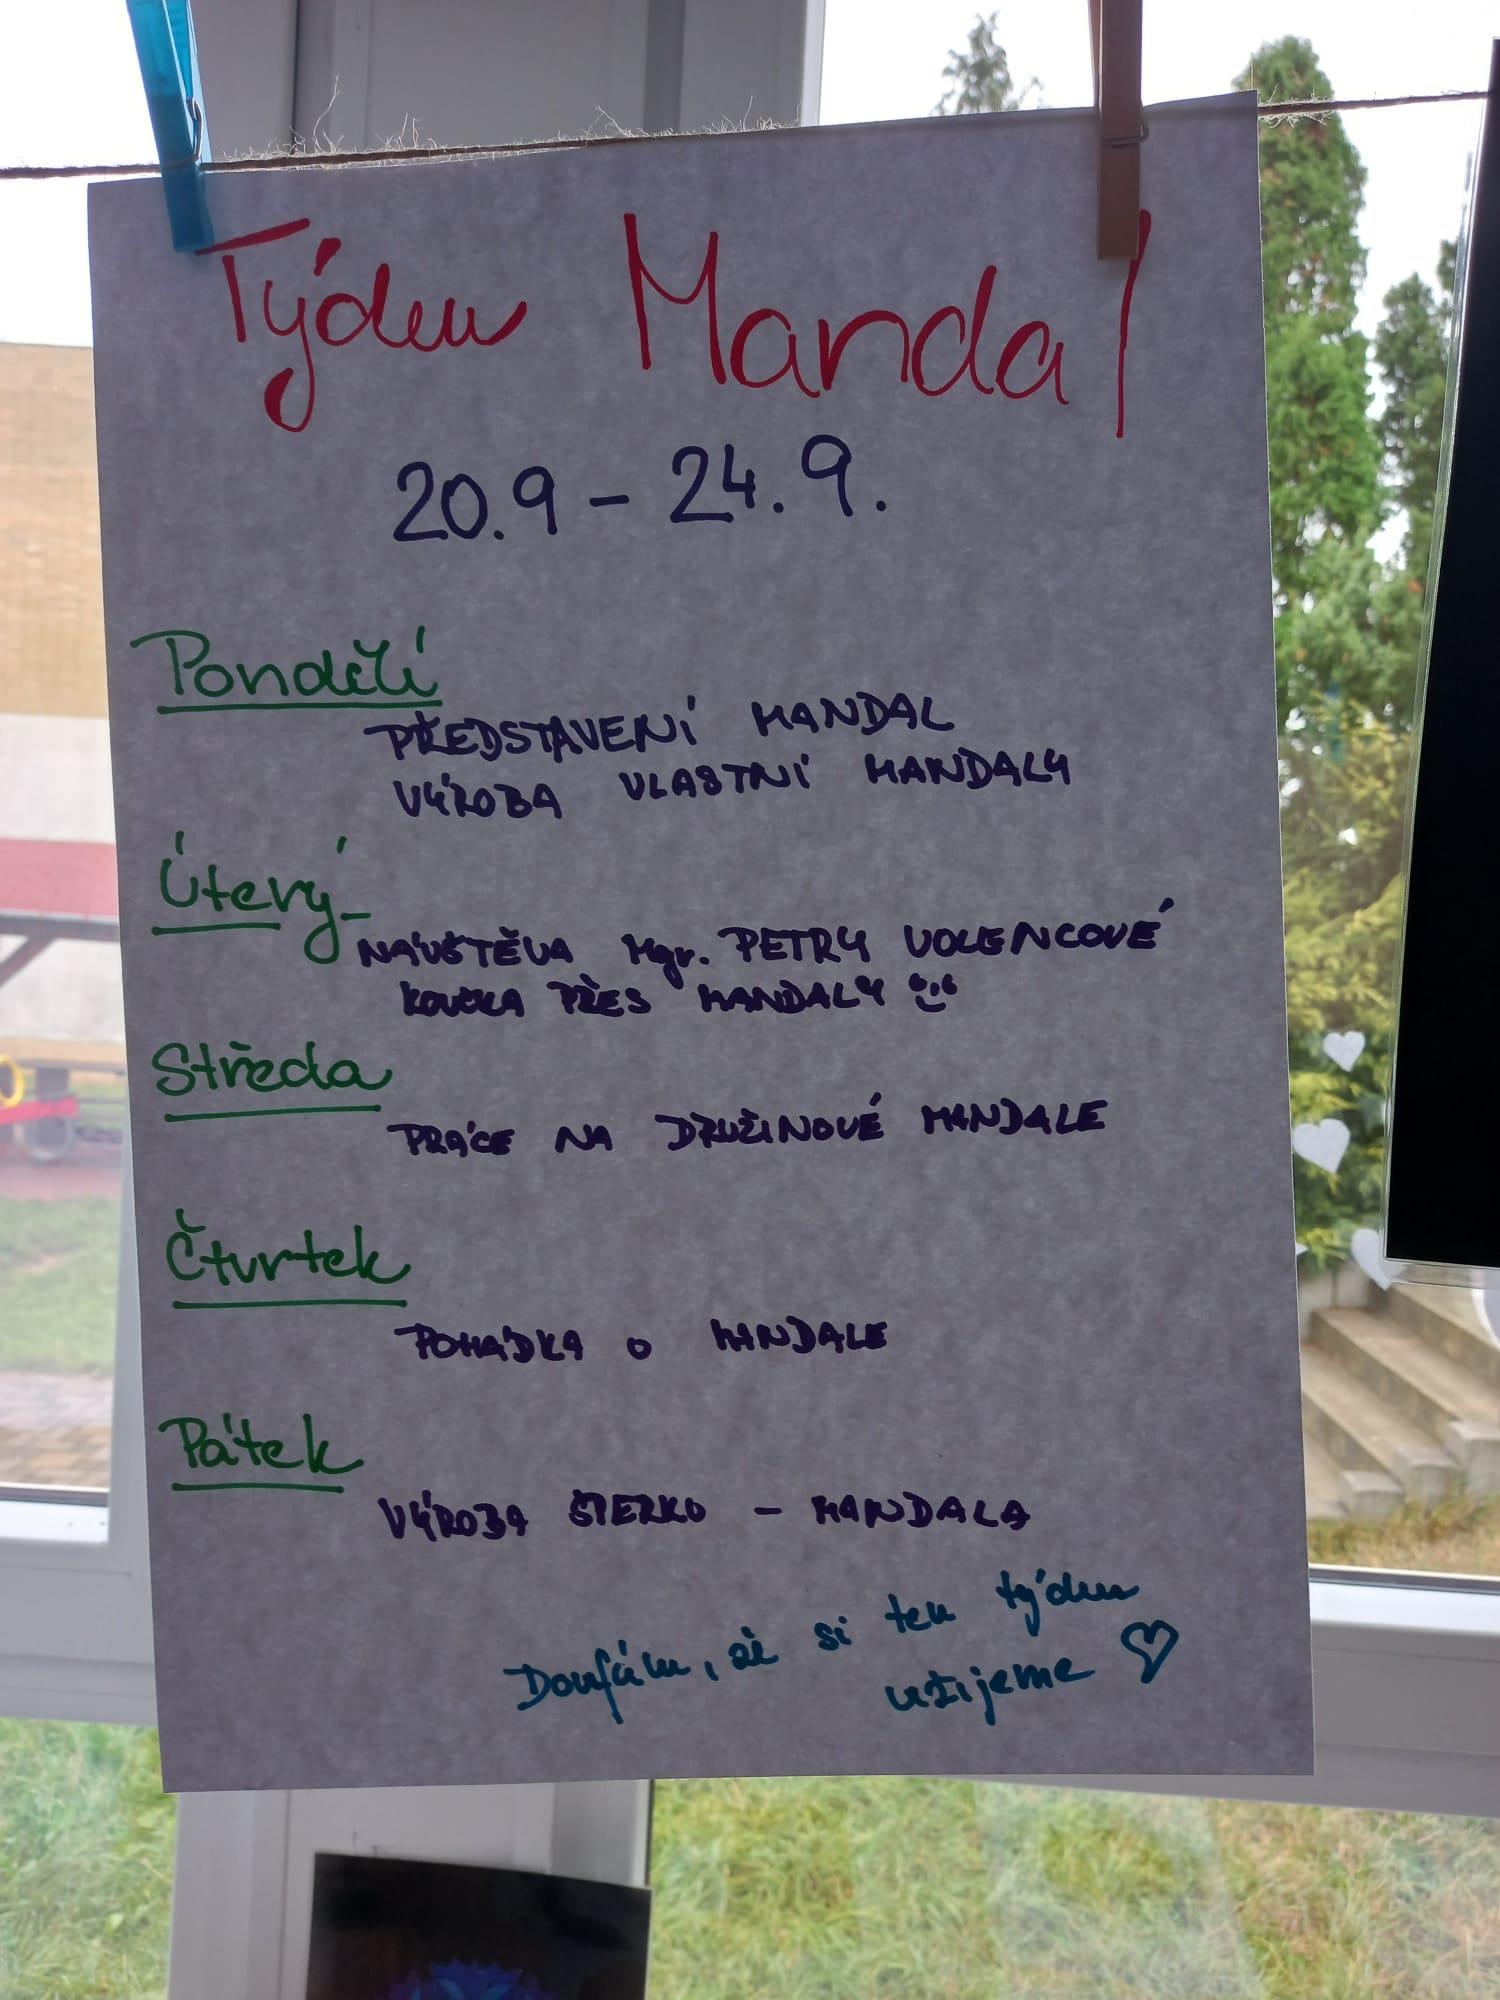 Týden Mandal
20.9 - 24.9.
Pondělí
PŘEDSTAVENÍ MANDAL
VÝROBA VLASTNÍ MANDALY
Úterý
NÁVŠTĚVA Mgr. PETRY VOLENCOVÉ
KOUČKA PŘES MANDALY
Středa
PRÁCE NA DRUŽINOVÉ MANDALE
Čtvrtek
POHÁDKA O MANDALE
Pátek
VÝROBA ŠTERKO - MANDALA
Doufám, že si ten týden
užijeme ♡